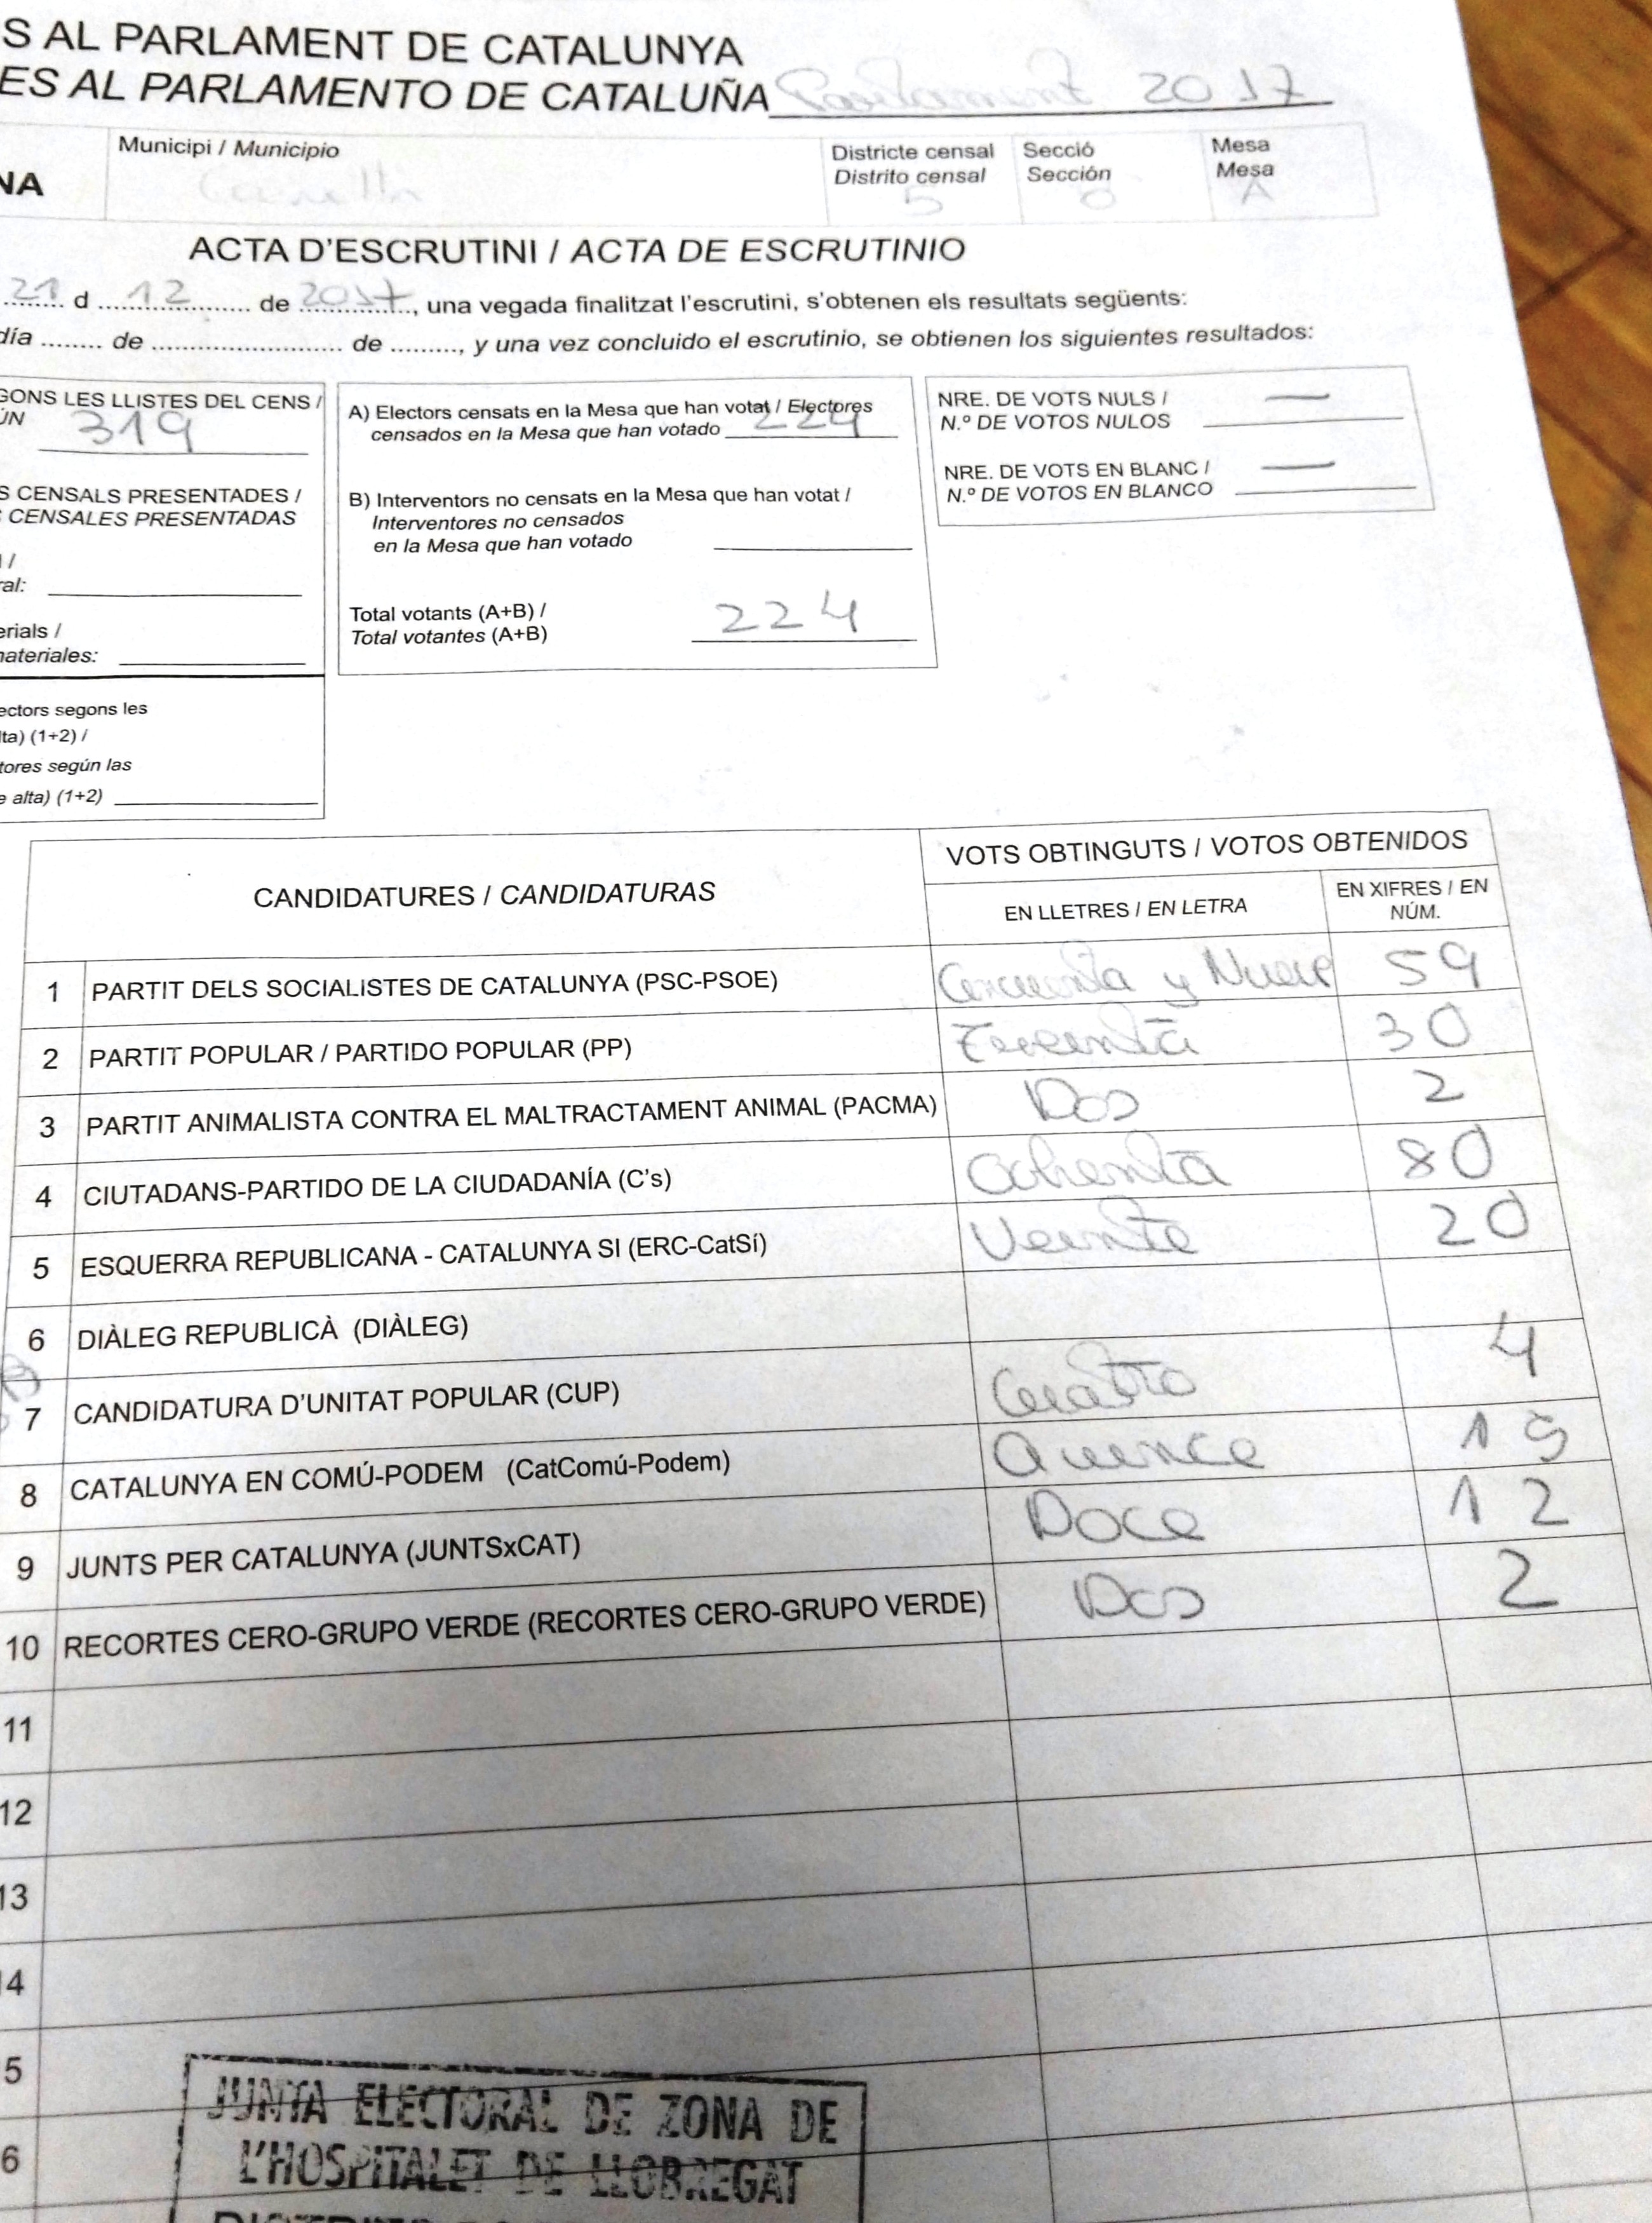 S AL PARLAMENT DE CATALUNYA
ES AL PARLAMENTO DE CATALUÑA Parlament 2017
NA
Municipi / Municipio
Districte censal
Distrito censal
5
Secció
Sección
Mesa
Mesa
A
ACTA D'ESCRUTINI / ACTA DE ESCRUTINIO
21 d 12 de 2017, una vegada finalitzat l'escrutini, s'obtenen els resultats següents:
día ........ de ........................ de ........., y una vez concluido el escrutinio, se obtienen los siguientes resultados:
GONS LES LLISTES DEL CENS /
ÚN 319
S CENSALS PRESENTADES /
CENSALES PRESENTADAS
l /
ral:
erials /
materiales:
ectors segons les
lta) (1+2) /
tores según las
e alta) (1+2)
A) Electors censats en la Mesa que han votat / Electores
censados en la Mesa que han votado 224
B) Interventors no censats en la Mesa que han votat /
Interventores no censados
en la Mesa que han votado
Total votants (A+B) /
Total votantes (A+B) 224
NRE. DE VOTS NULS / —
N.º DE VOTOS NULOS
NRE. DE VOTS EN BLANC / —
N.º DE VOTOS EN BLANCO
CANDIDATURES / CANDIDATURAS
VOTS OBTINGUTS / VOTOS OBTENIDOS
EN LLETRES / EN LETRA
EN XIFRES / EN
NÚM.
1 PARTIT DELS SOCIALISTES DE CATALUNYA (PSC-PSOE) Cincuenta y Nueve 59
2 PARTIT POPULAR / PARTIDO POPULAR (PP) Treinta 30
3 PARTIT ANIMALISTA CONTRA EL MALTRACTAMENT ANIMAL (PACMA) Dos 2
4 CIUTADANS-PARTIDO DE LA CIUDADANÍA (C's) Ochenta 80
5 ESQUERRA REPUBLICANA - CATALUNYA SI (ERC-CatSí) Veinte 20
6 DIÀLEG REPUBLICÀ (DIÀLEG)
7 CANDIDATURA D'UNITAT POPULAR (CUP) Cuatro 4
8 CATALUNYA EN COMÚ-PODEM (CatComú-Podem) Quince 15
9 JUNTS PER CATALUNYA (JUNTSxCAT) Doce 12
10 RECORTES CERO-GRUPO VERDE (RECORTES CERO-GRUPO VERDE) Dos 2
11
12
13
14
5
6
JUNTA ELECTORAL DE ZONA DE
L'HOSPITALET DE LLOBREGAT